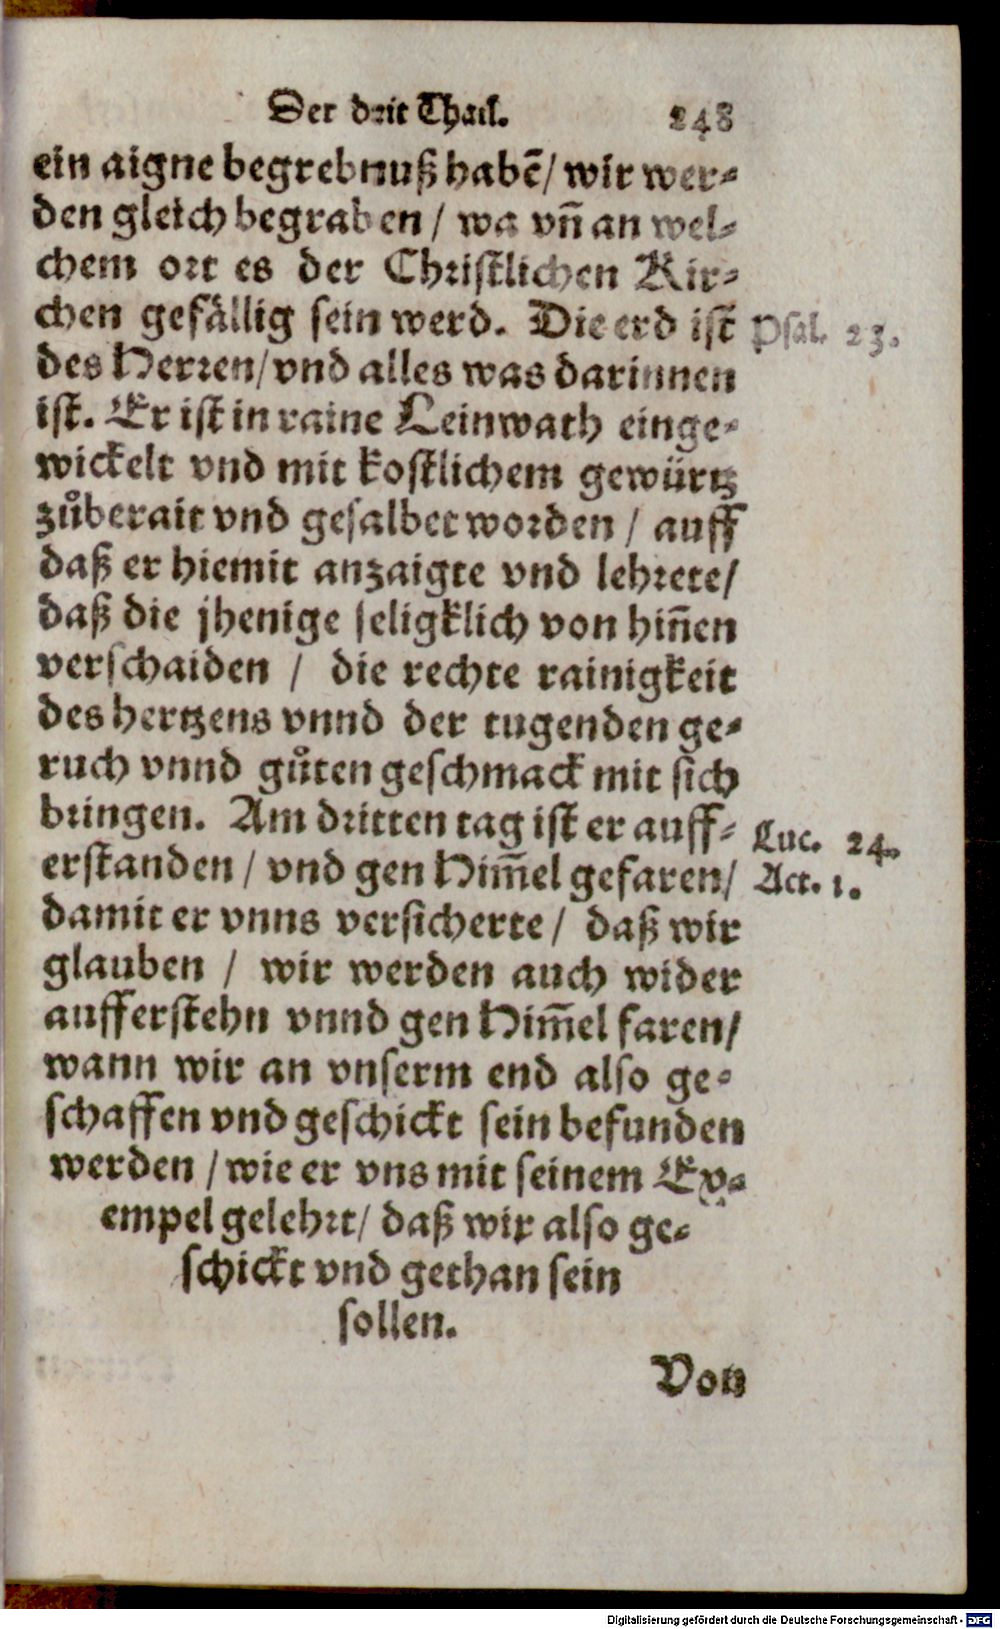 Der drit Thail. 248
ein aigne begrebnuß habẽ/ wir wer⸗
den gleich begraben / wa vñ an wel⸗
chem ort es der Christlichen Kir⸗
chen gefällig sein werd. Die erd ist Psal. 23.
des Herren/ vnd alles was darinnen
ist. Er ist in raine Leinwath einge⸗
wickelt vnd mit kostlichem gewürtz
zůberait vnd gesalbet worden / auff
daß er hiemit anzaigte vnd lehrete/
daß die jhenige seligklich von hiñen
verschaiden / die rechte rainigkeit
des hertzens vnnd der tugenden ge⸗
ruch vnnd gůten geschmack mit sich
bringen. Am dritten tag ist er auff⸗ Luc. 24.
erstanden / vnd gen Him̃el gefaren/ Act. 1.
damit er vnns versicherte / daß wir
glauben / wir werden auch wider
aufferstehn vnnd gen Him̃el faren/
wann wir an vnserm end also ge⸗
schaffen vnd geschickt sein befunden
werden / wie er vns mit seinem Ex⸗
empel gelehrt/ daß wir also ge⸗
schickt vnd gethan sein
sollen.
Von
Digitalisierung gefördert durch die Deutsche Forschungsgemeinschaft - DFG